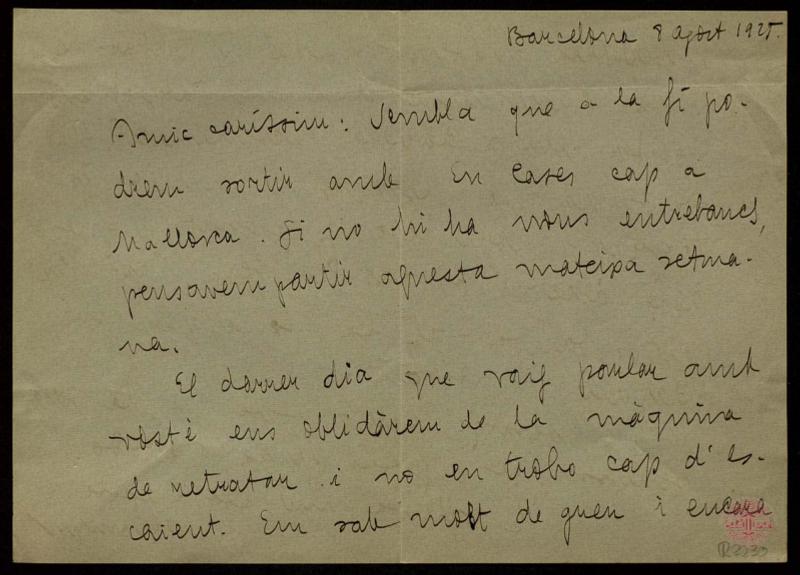 Barcelona 8 agost 1925.
Amic caríssim: Sembla que a la fi po-
drem sortir amb En Cases cap a
Mallorca. Si no hi ha nous entrebancs,
pensavem partir aquesta mateixa setma-
na.
El darrer dia que vaig parlar amb
vostè ens oblidàrem de la màquina
de retratar i no en trobo cap d'es-
caient. Em sab molt de greu i encara
R.3239